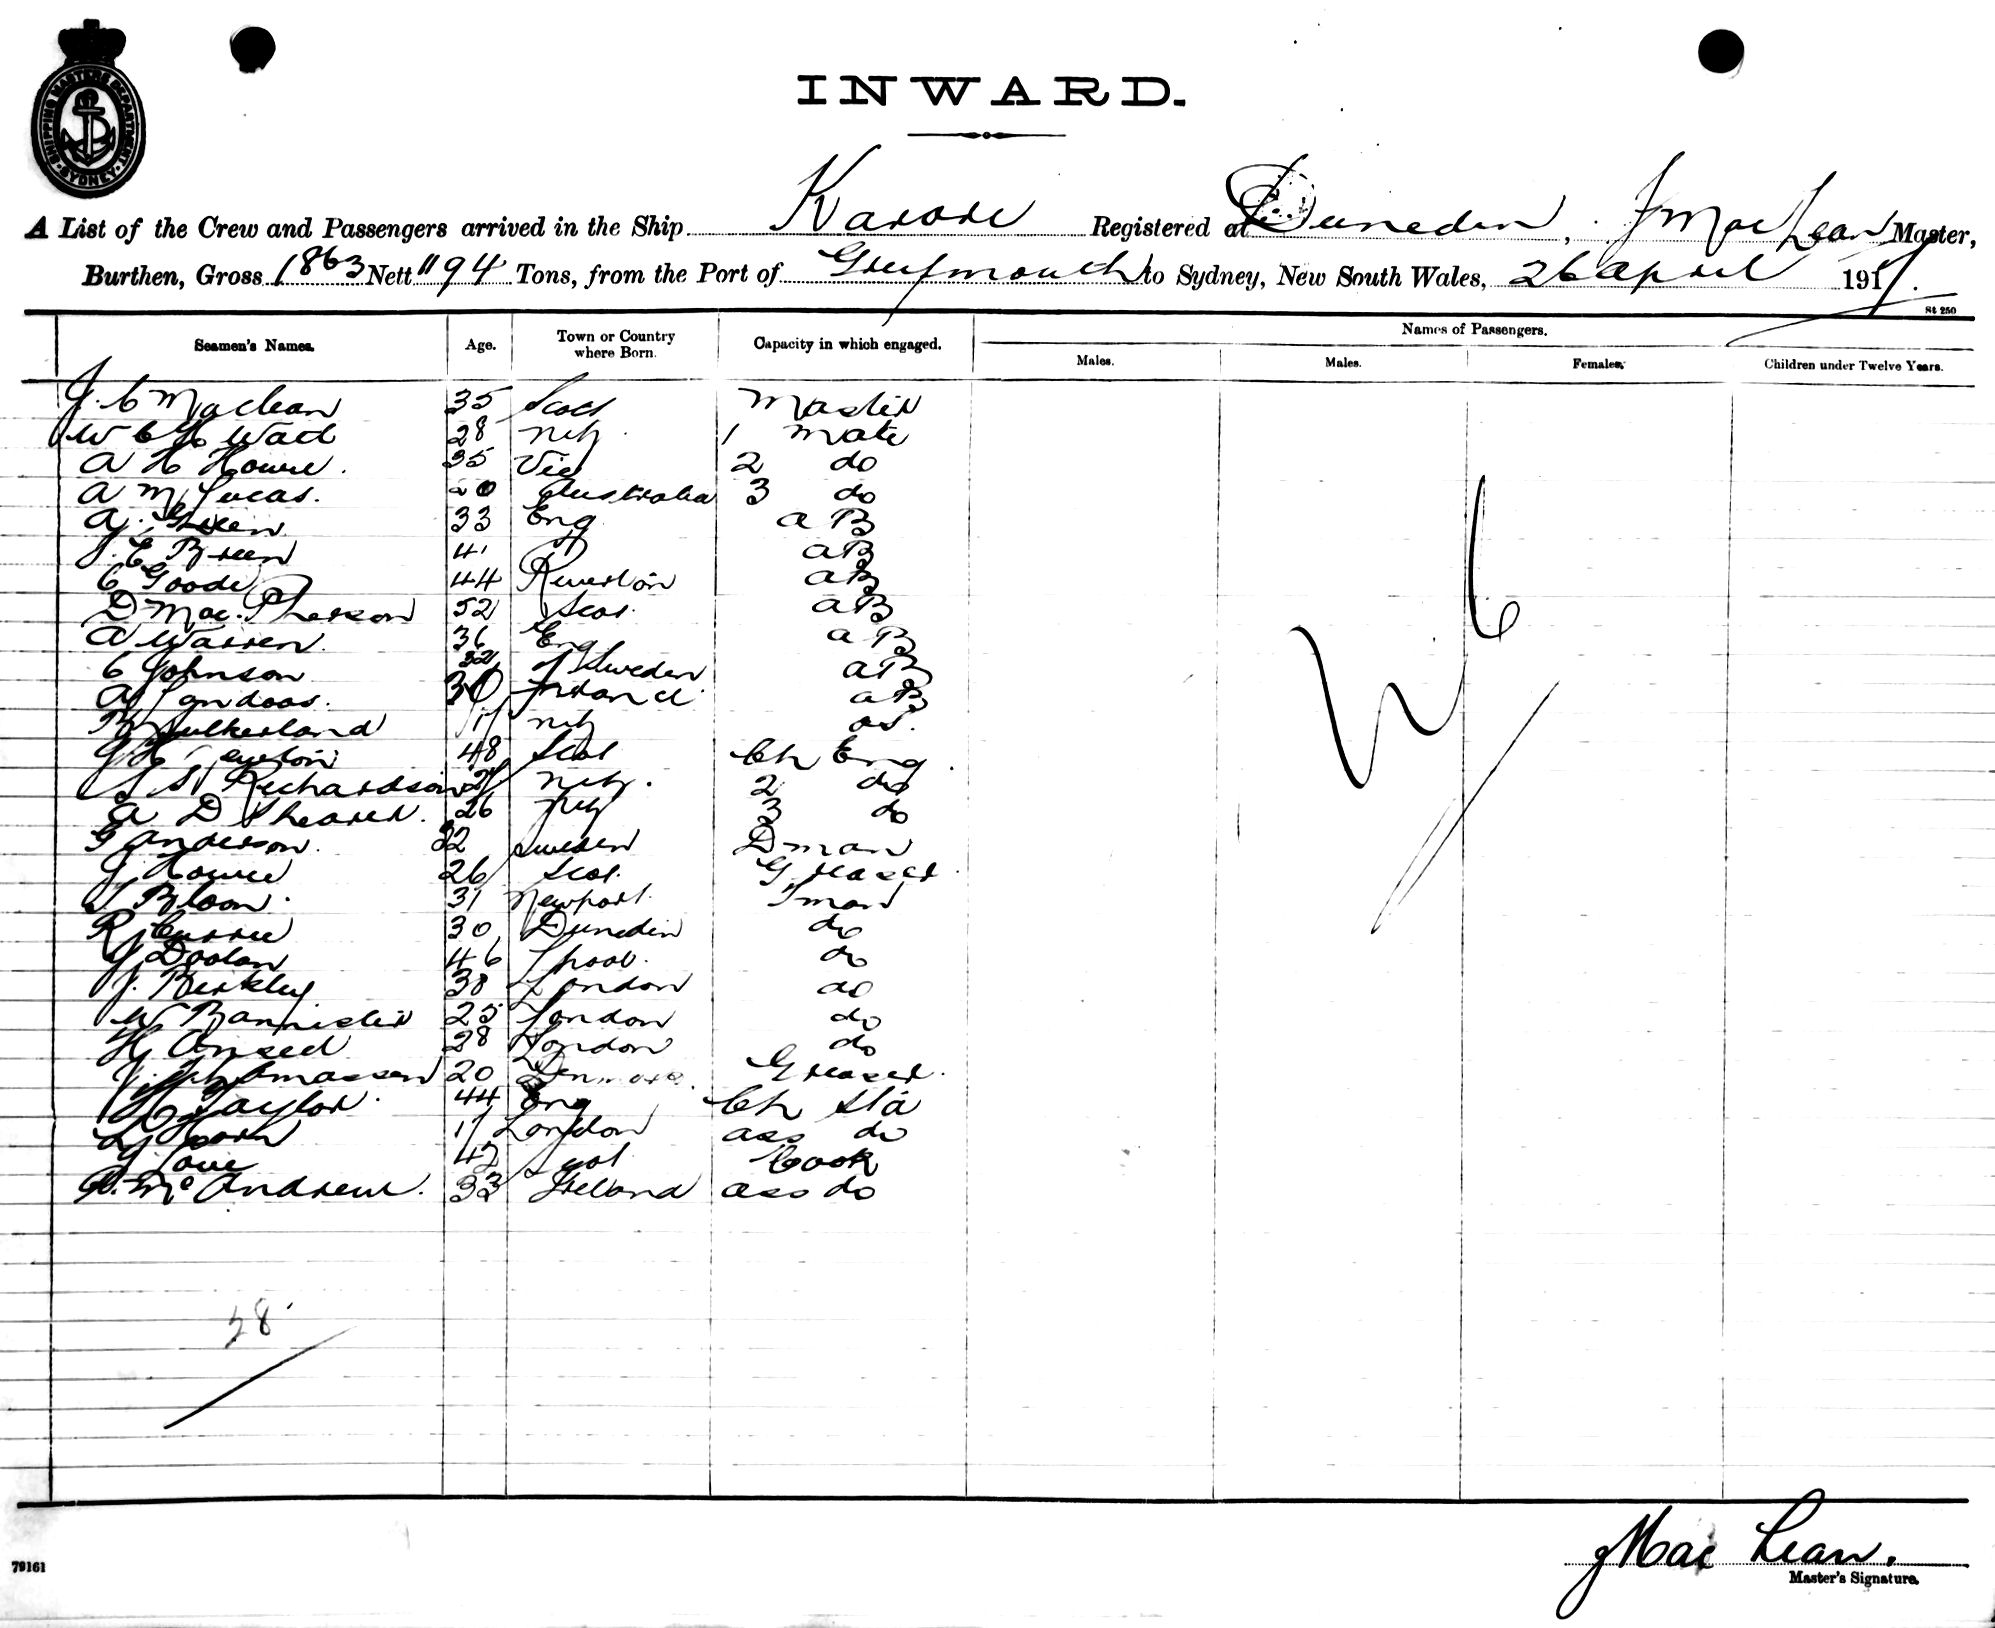 SHIPPING MASTERS DEPARTMENT SYDNEY
INWARD.
A List of the Crew and Passengers arrived in the Ship Karori Registered at Dunedin, J MacLean Master,
Burthen, Gross 1863 Nett 1194 Tons, from the Port of Greymouth to Sydney, New South Wales, 26 April 1917.
St 250
Seamen's Names. Age. Town or Country where Born. Capacity in which engaged. Names of Passengers.
Males. Males. Females. Children under Twelve Years.
J. C Maclean 35 Scot Master
W C H Watt 28 NZ 1 Mate
A H Howie. 35 Vic 2 do
A M Lucas. 20 Australia 3 do
A. Green 33 Eng AB
J. E Breen 41 AB
C Goode 44 Riverton AB
D MacPherson 52 Scot. AB
A Warren. 36 Eng AB
C Johnson 32 Sweden AB
A 30 AB
R Sutherland 17 NZ OS.
48 Scot Ch Eng.
Richardson NZ. 2 do
A D Shearer. 26 NZ 3 do
G Anderson. 32 Sweden Dman
J Howie 26 Scot. Greaser.
Bloom. 31 Newport. Fman
R Currie 30 Dunedin do
Doolan 46 Lpool. do
J. Berkley 38 London do
W Bannister 25 London do
H 28 London do
Thomassen 20 Denmark. Greaser.
H Taylor. 44 Eng Ch Std
17 London ass do
47 Scot Cook
McAndrew. 33 Ireland ass do
28
Nil
J MacLean.
Master's Signature.
79161